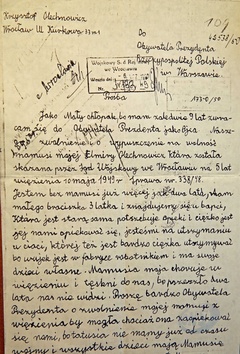 Krzysztof Olechnowicz
Wrocław Ul. Kurkowa
Do
Obywatela Prezydenta
Rzeczypospolitej Polskiej
w Warszawie.
we Wrocławiu
Prośba
Jako Mały chłopak bo mam zaledwie 9 lat zwra-
cam się do Obywatela Prezydenta jako Ojca Nasze-
zwolnienie i wypuszczenie na wolność
mamusi mojej Elmiry Olechnowicz która została
skazana przez Sąd Wojskowy we Wrocławiu na 5 lat
więzienia 10 maja 1949 r sprawa nr. 338/48.
Jestem bez mamusi już więcej jak dwa lata, mam
małego braciszka 3 latka i znajdujemy się u babci,
która jest starą, sama potrzebuje opieki i ciężko jest
jej nami opiekować się, jesteśmy na utrzymaniu
u cioci, której też jest bardzo ciężko utrzymywać
bo wujek jest w fabryce robotnikiem i ma swoje
dzieci własne. Mamusia moja choruje w
więzieniu i tęskni do nas, bo przeszło dwa
lata nas nie widzi. Proszę bardzo Obywatela
Prezydenta o zwolnienie mojej mamusi z
więzienia by mogła chociaż ona zaopiekować
się nami, bo tatusia nie mamy już od czasu
wojny i wszystkie dzieci mają Mamusię